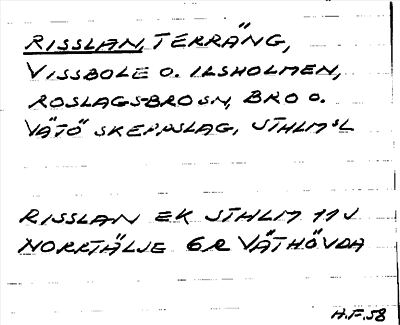 RISSLAN, TERRÄNG,
VISSBOLE O. ILSHOLMEN,
ROSLAGS-BRO SN, BRO O.
VÄTÖ SKEPPSLAG, STHLMSL
RISSLAN EK STHLM 11J
NORRTÄLJE 6R VÄTHÖVDA
H.F. 58